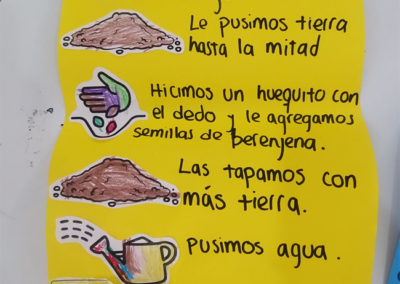 Le pusimos tierra
hasta la mitad
Hicimos un huequito con
el dedo y le agregamos
semillas de berenjena.
Las tapamos con
más tierra.
Pusimos agua.